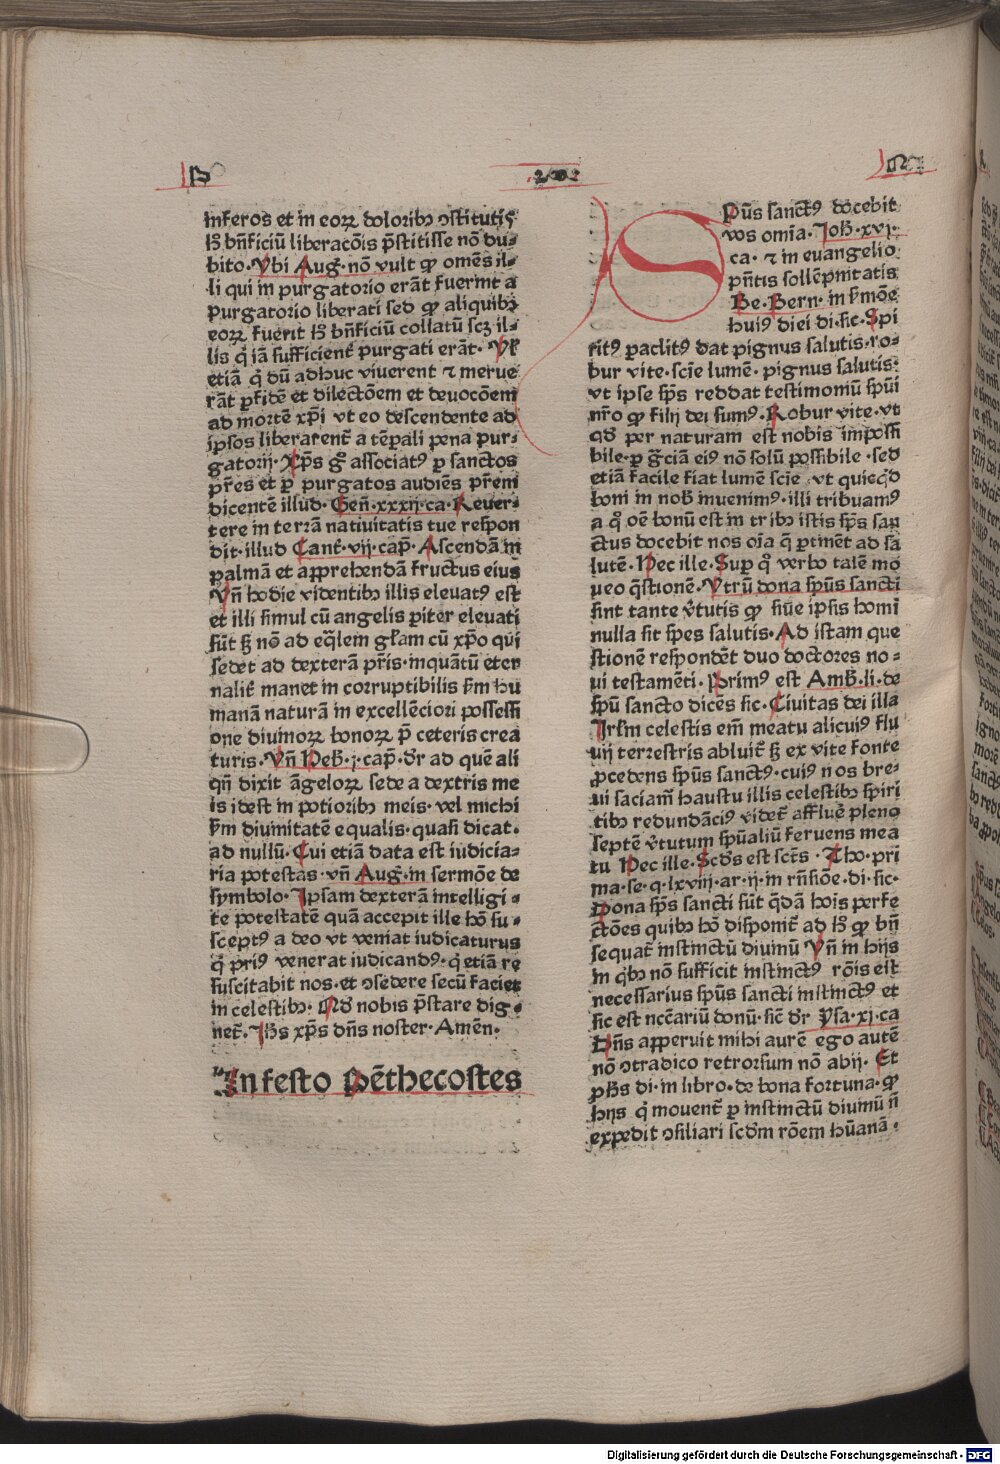 inferos et in eorꝝ doloribꝫ ꝯſtitutis
hꝰ bn̄ficiū liberacōis p̄ſtitiſſe nō du⸗
bito· Vbi Aug᷒· nō vult ꝙ omēs il⸗
li qui in purgatorio erāt fuerint a
purgatorio liberati ſed ꝙ aliquibꝫ
eorꝝ fuerit hꝰ bn̄ficiū collatū ſcꝫ il⸗
lis q̇ iā ſufficient̄ purgati erāt·
etiā q̇ dū adhuc viuerent ⁊ merue
rāt ꝑ fidē et dilectōem et deuocōem
ad mortē xp̄i vt eo deſcendente ad
ipſos liberarent̄ a tēpali pena pur⸗
gatorij· Xp̄s gͦ aſſociatꝰ ꝑ ſanctos
pr̄es et ꝑ purgatos audiēs pr̄em
dicentē illud· Gen̄·xxxij·ca· Reuer⸗
tere in terrā natiuitatis tue reſpon
dit· illud Cant̄·vij·cap̄· Aſcendā in
palmā et apprehendā fructus eius
Vn̄ hodie videntibꝫ illis eleuatꝰ eſt
et illi ſimul cū angelis pariter eleuati
ſūt ſꝫ nō ad eq̄lem gl̄am cū xp̄o qui
ſedet ad dexterā pr̄is· inquātū eter
nalit̄ manet in corruptibilis ẜm hu
manā naturā in excellēciori poſſeſſi
one diuinorꝝ bonorꝝ p̄ ceteris crea
turis· Vn̄ Heb̄·j·cap̄· dr̄ ad quē ali
qn̄ dixit āgelorꝝ ſede a dextris me
is ideſt in potioribꝫ meis· vel michi
ẜm diuinitatē equalis· quaſi dicat·
ad nullū· Cui etiā data eſt iudicia⸗
ria poteſtas· vn̄ Aug᷒· in ſermōe de
ſymbolo· Ipſam dexterā intelligi⸗
te poteſtatē quā accepit ille hō ſu⸗
ſceptꝰ a deo vt veniat iudicaturus
q̇ priꝰ venerat iudicandꝰ· q̇ etiā re
ſuſcitabit nos· et ꝯſedere ſecū faciet
in celeſtibꝫ· Qd̄ nobis p̄ſtare dig⸗
net̄· Ihs̄ xp̄s dn̄s noſter· Amēn·
In feſto Pēthecoſtes
Spūs ſanctꝰ docebit
vos omīa· Joh̄·xvj·
ca· ⁊ in euangelio
pn̄tis ſollēpnitatis
Be· Bern· in ẜmōe
huiꝰ diei di· ſic· Spi
ritꝰ paclitꝰ dat pignus ſalutis· ro⸗
bur vite· ſcīe lumē· pignus ſalutis·
vt ipſe ſp̄s reddat teſtimoniū ſpūi
nr̄o ꝙ filij dei ſumꝰ· Robur vite· vt
qd̄ per naturam eſt nobis impoſſi
bile· ꝑ gr̄ciā eiꝰ nō ſolū poſſibile· ſed
etiā facile fiat lumē ſcīe· vt quicq̇d
boni in nob̄ inuenimꝰ· illi tribuamꝰ
a qͦ oē bonū eſt in tribꝫ iſtis ſp̄s ſan
ctus docebit nos oīa q̄ ꝑtinēt ad ſa
lutē· Hec ille· Sup qͦ verbo talē mo
ueo q̄ſtionē· Vtrū dona ſpūs ſancti
ſint tante v̄tutis ꝙ ſiue ipſis homi
nulla ſit ſpes ſalutis· Ad iſtam que
ſtionē reſpondēt duo doctores no⸗
ui teſtamēti· Primꝰ eſt Amb̄·li·de
ſpū ſancto dicēs ſic· Ciuitas dei illa
Irl̄m celeſtis em̄ meatu alicuiꝰ flu
uij terreſtris abluit̄ ſꝫ ex vite fonte
ꝓcedens ſpūs ſanctꝰ· cuiꝰ nos bre⸗
ui ſaciam̄ hauſtu illis celeſtibꝫ ſpiri
tibꝫ redundāciꝰ videt̄ affluē pleno
ſeptē v̄tutum ſpūaliū feruens mea
tu Hec ille· Scd̄s eſt ſct̄s· Tho· pri
ma· ſe· q· lxviij· ar· ij· in rn̄ſiōe· di· ſic·
Dona ſp̄s ſancti ſūt q̄dā hoīs perfe
ctōes quibꝫ hō diſponit̄ ad hꝰ ꝙ bn̄
ſequat̄ inſtinctū diuinū Vn̄ in hijs
in qͥbꝫ nō ſufficit inſtinctꝰ rōis eſt
neceſſarius ſpūs ſancti inſtinctꝰ et
ſic eſt nc̄cariū donū· ſic̄ dr̄ Yſa·xj·ca
Dn̄s apperuit mihi aurē ego autē
nō ꝯtradico retrorſum nō abij· Et
ph̄s di· in libro· de bona fortuna· ꝙ
hijs q̇ mouent̄ ꝑ inſtinctū diuinū n̄
expedit ꝯſiliari ſcd̄m rōem hūanā·
Digitalisierung gefördert durch die Deutsche Forschungsgemeinschaft - DFG